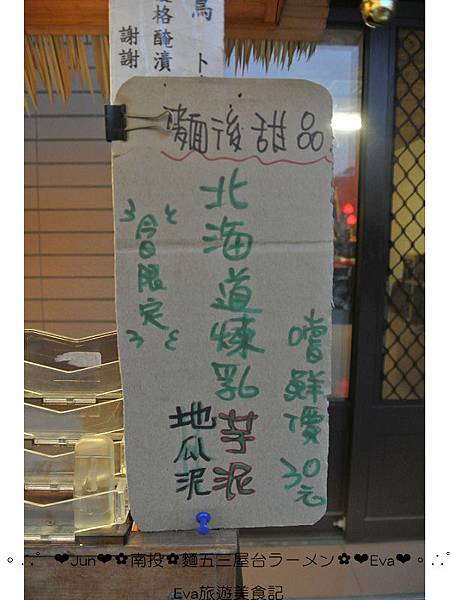 鳥 ト
嚴格醃漬
謝謝
麵後甜品
北海道煉乳芋泥
地瓜泥
今日限定
嚐鮮價30元
。∴° ❤Jun❤✿南投✿麵五三屋台ラーメン✿❤Eva❤。∴°
Eva旅遊美食記